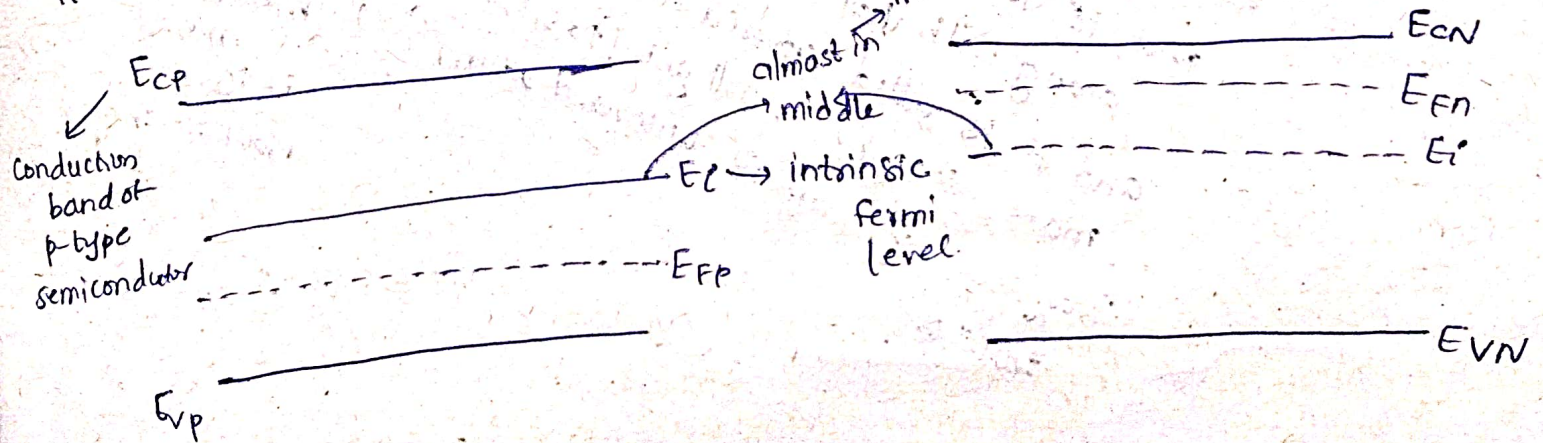 Ecp
Conduction
band of
p-type
semicondutor
Evp
almost in
middle
Ei → intrinsic
fermi
level.
EFp
EcN
EFn
Ei
EVN